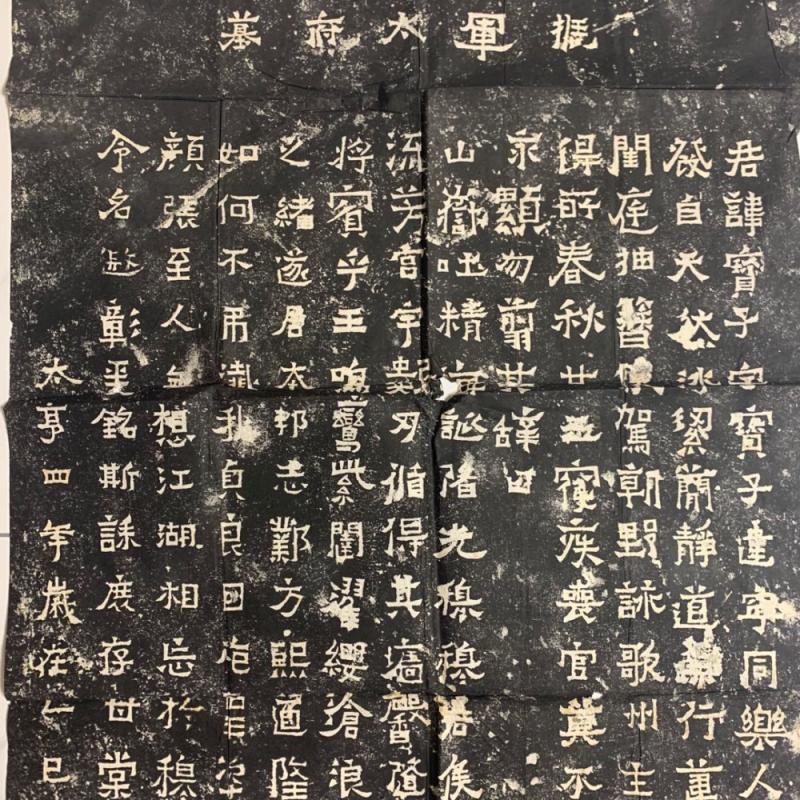 振軍太府墓
君諱寶子字寶子建寧同樂人
發自天然冰潔簡靜道兼行葦
閨庭抽簪俟駕朝野詠歌州主
得所春秋廿五寢疾喪官莫不
永顯勿翦其辭曰
山嶽吐精海誕陼光穆穆君侯
流芳宮宇數刃循得其墻馨隨
將賓乎王鳴鸞紫闥濯纓滄浪
之緒遂居本邦志鄴方熙道隆
如何不弔殲我貞良回抱聖姿
顏張至人無想江湖相忘於穆
令名遐彰爰銘斯誄庶存甘棠
太亨四年歲在乙巳